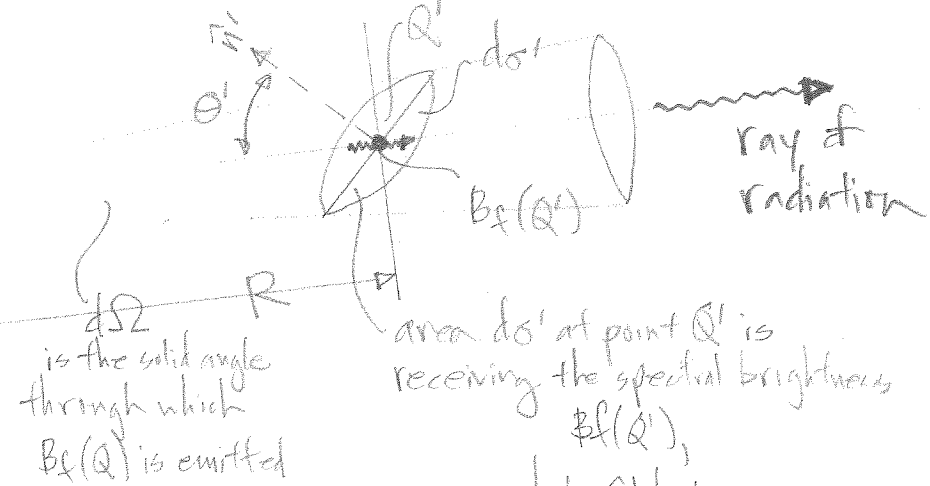 Q'
n'
dσ'
θ'
ray of
radiation
Bf(Q')
R
dΩ
is the solid angle
through which
Bf(Q) is emitted
area dσ' at point Q' is
receiving the spectral brightness
Bf(Q'),